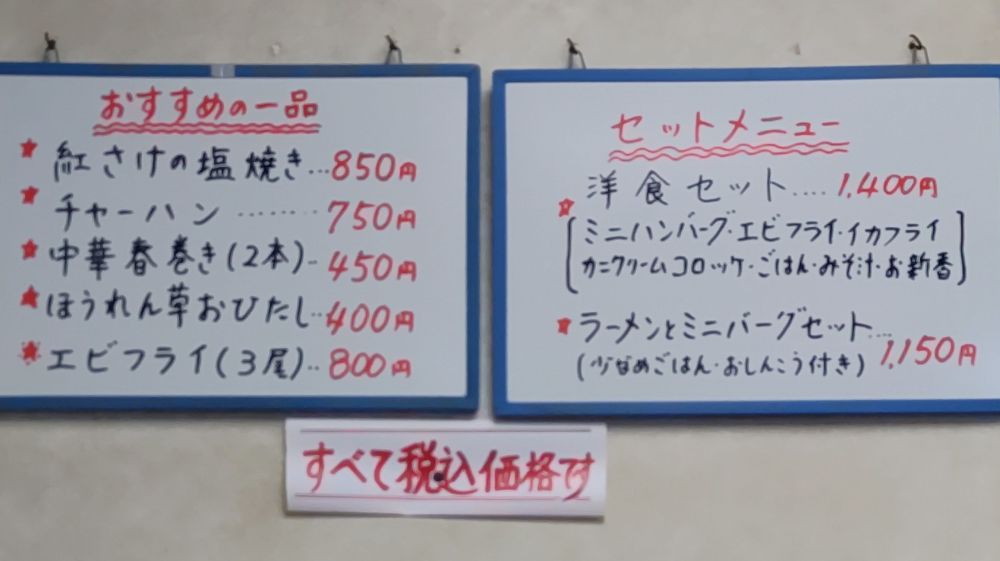 おすすめの一品
★ 紅さけの塩焼き…850円
★ チャーハン………750円
★ 中華春巻き(2本)‥450円
★ ほうれん草おひたし‥400円
★ エビフライ(3尾)‥800円
セットメニュー
★ 洋食セット‥‥1,400円
[ミニハンバーグ・エビフライ・イカフライ
カニクリームコロッケ・ごはん・みそ汁・お新香]
★ ラーメンとミニバーグセット…
(少なめごはん・おしんこう付き) 1,150円
すべて税込価格です